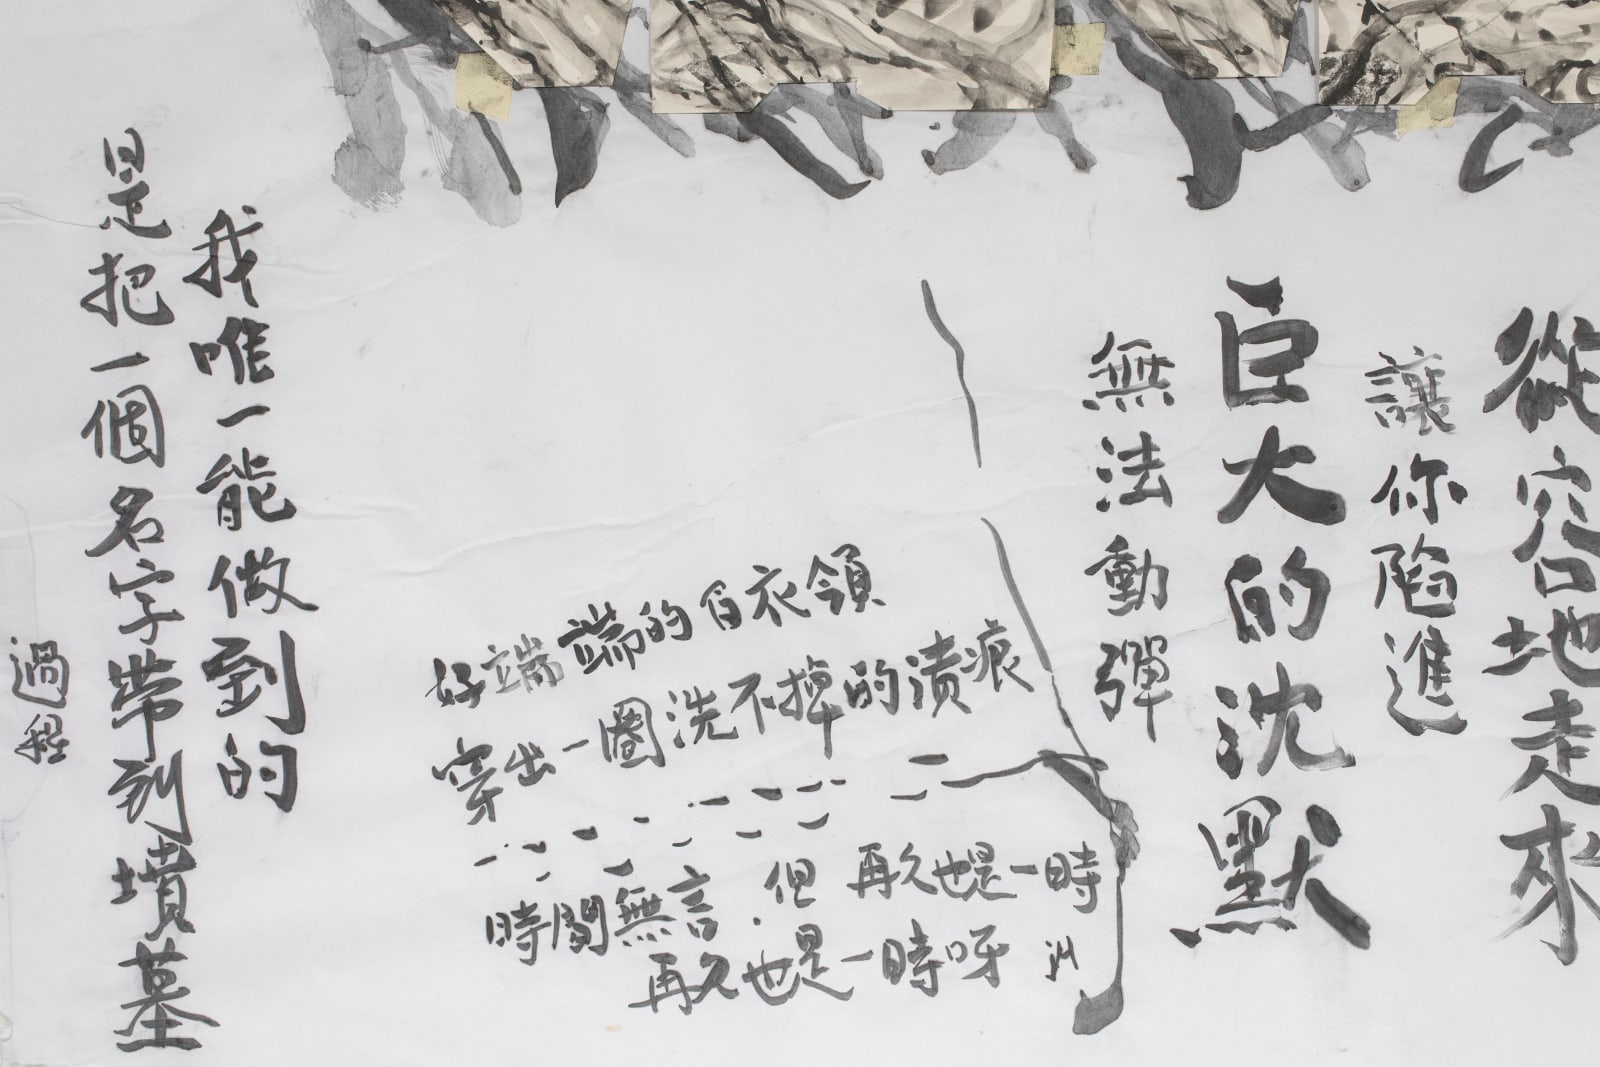 從容地走來
讓你陷進
巨大的沈默
無法動彈
好端端的白衣領
穿出一圈洗不掉的漬痕
時間無言．但 再久也是一時
再久也是一時呀
我唯一能做到的
是把一個名字帶到墳墓
過程